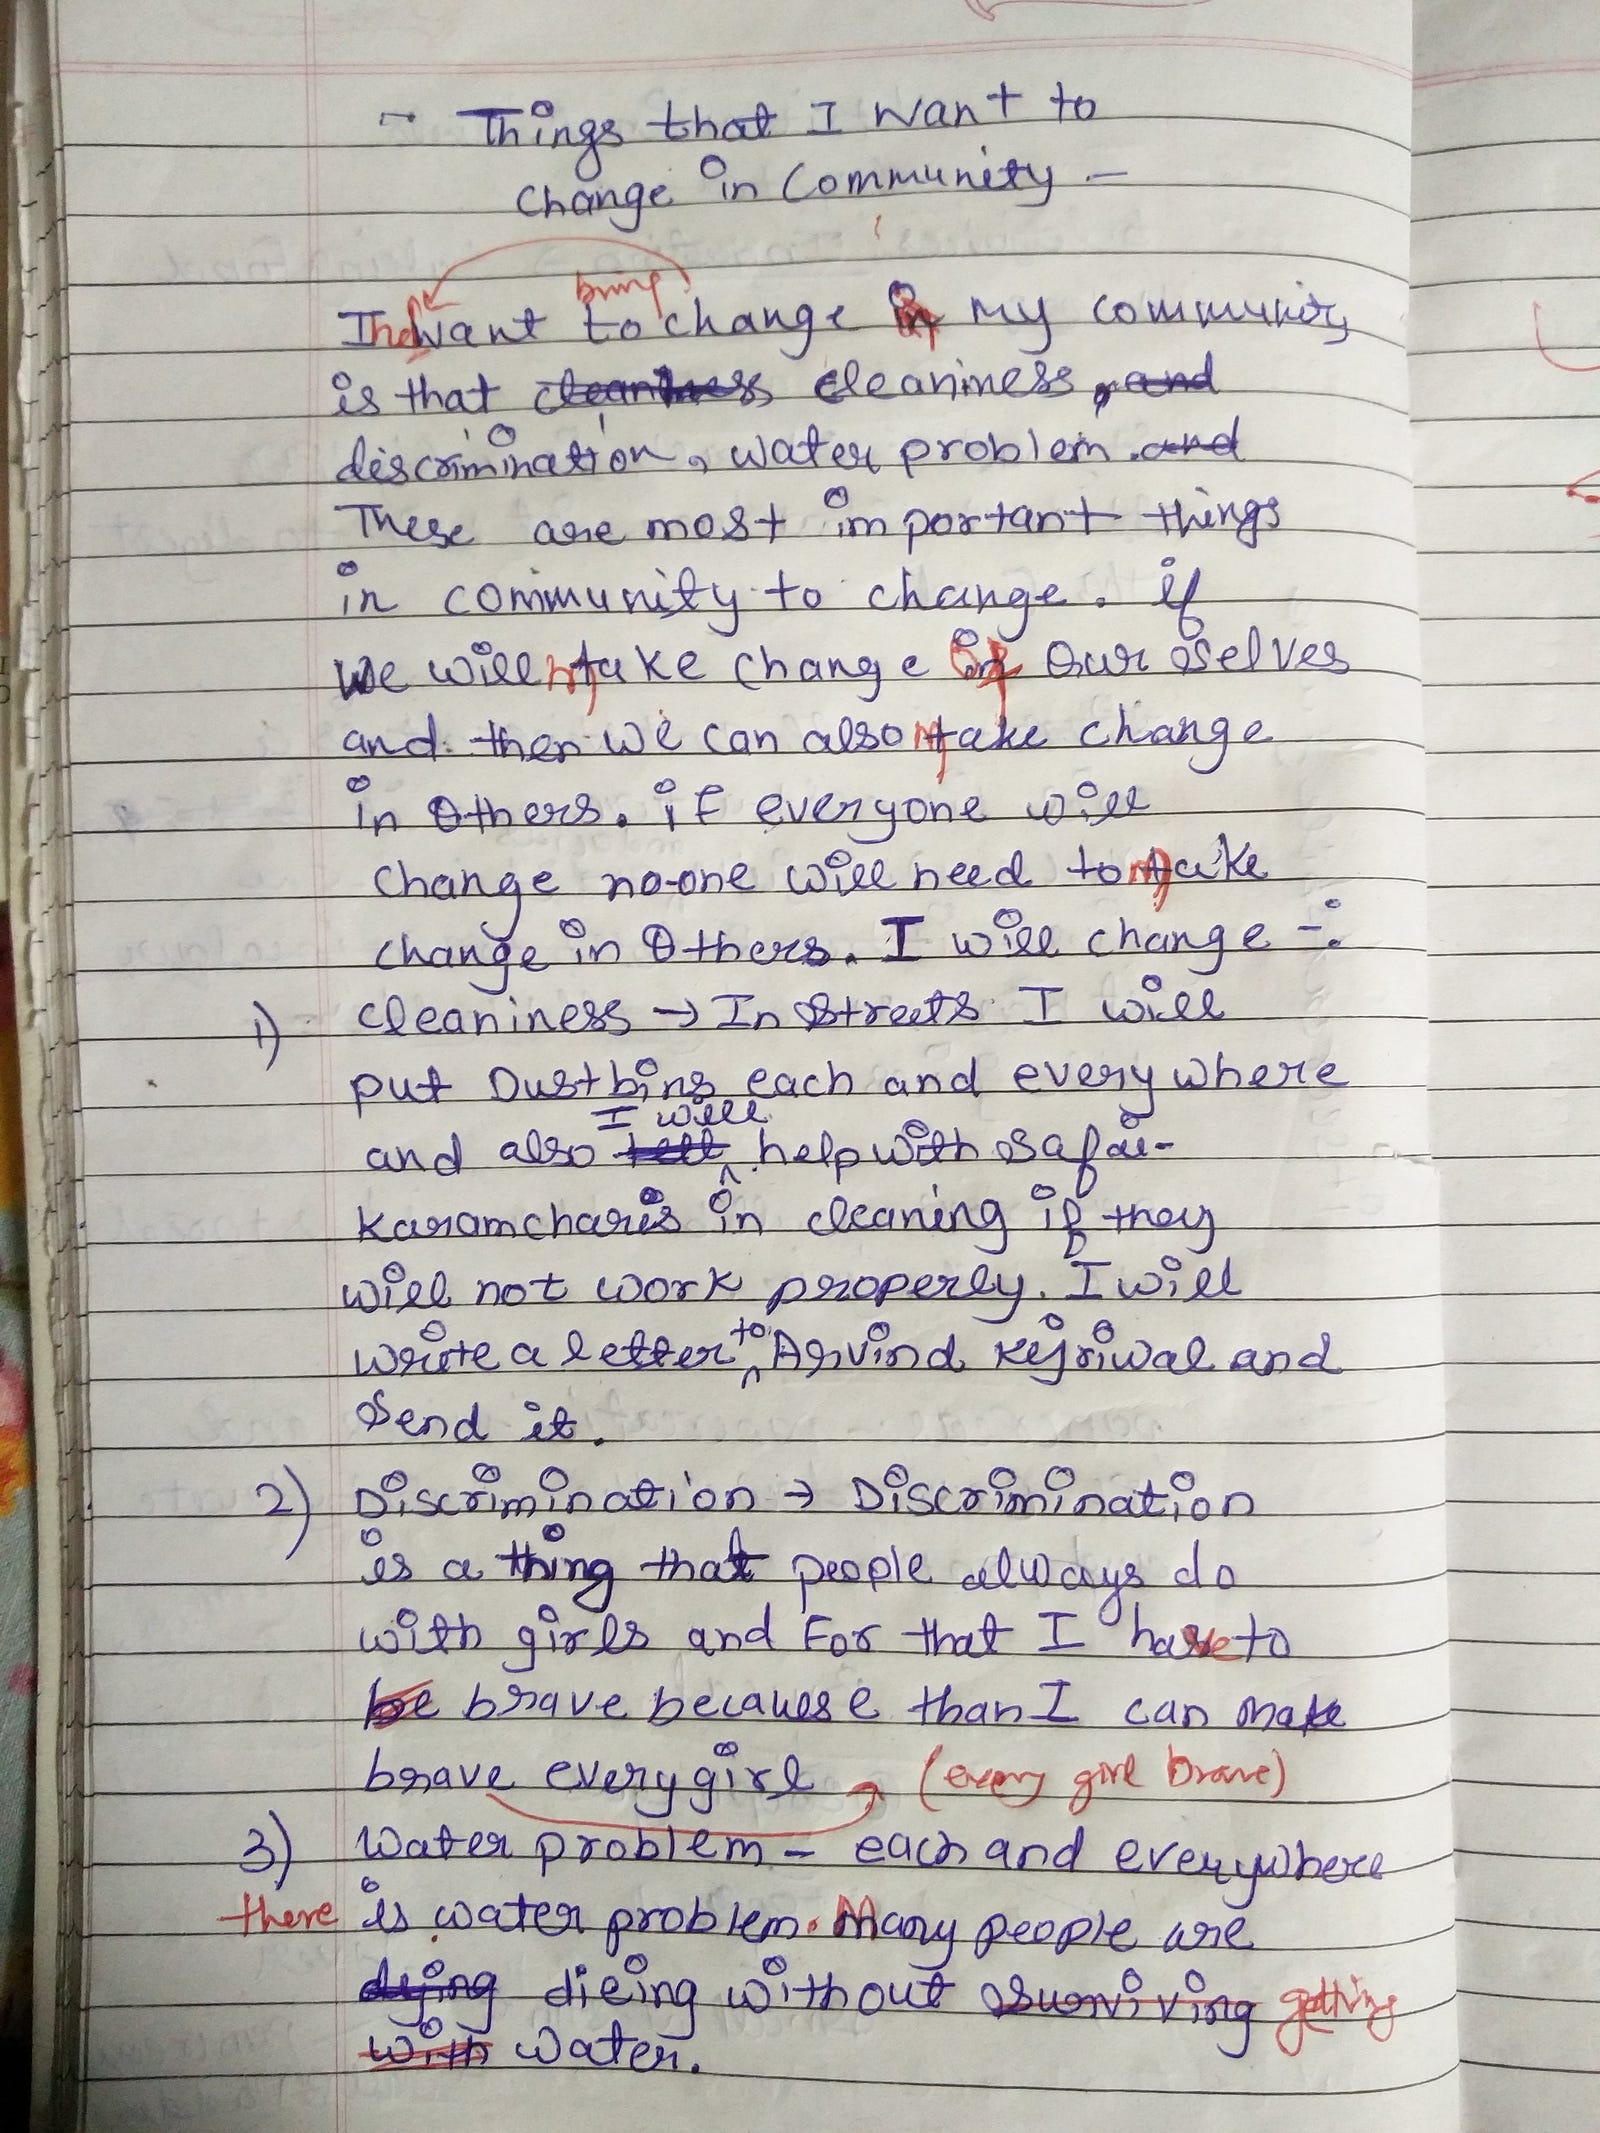 - Things that I want to
change in community -
bring
The I want to change in my community
is that cleanness cleaniness, and
discrimination, water problem. and
These are most important things
in community to change. if
we will make change in our selves
and then we can also make change
in others. if everyone will
change no-one will need to make
change in others. I will change -:
1) cleaniness → In streets I will
put Dustbins each and everywhere
I will
and also tell help with safai-
karamcharis in cleaning if they
will not work properly. I will
write a letter to Arvind Kejriwal and
send it.
2) Discrimination → Discrimination
is a thing that people always do
with girls and For that I have to
be brave because than I can make
brave every girl (every girl brave)
3) water problem - each and everywhere
there is water problem. Many people are
dying dieing without surviving getting
with water.